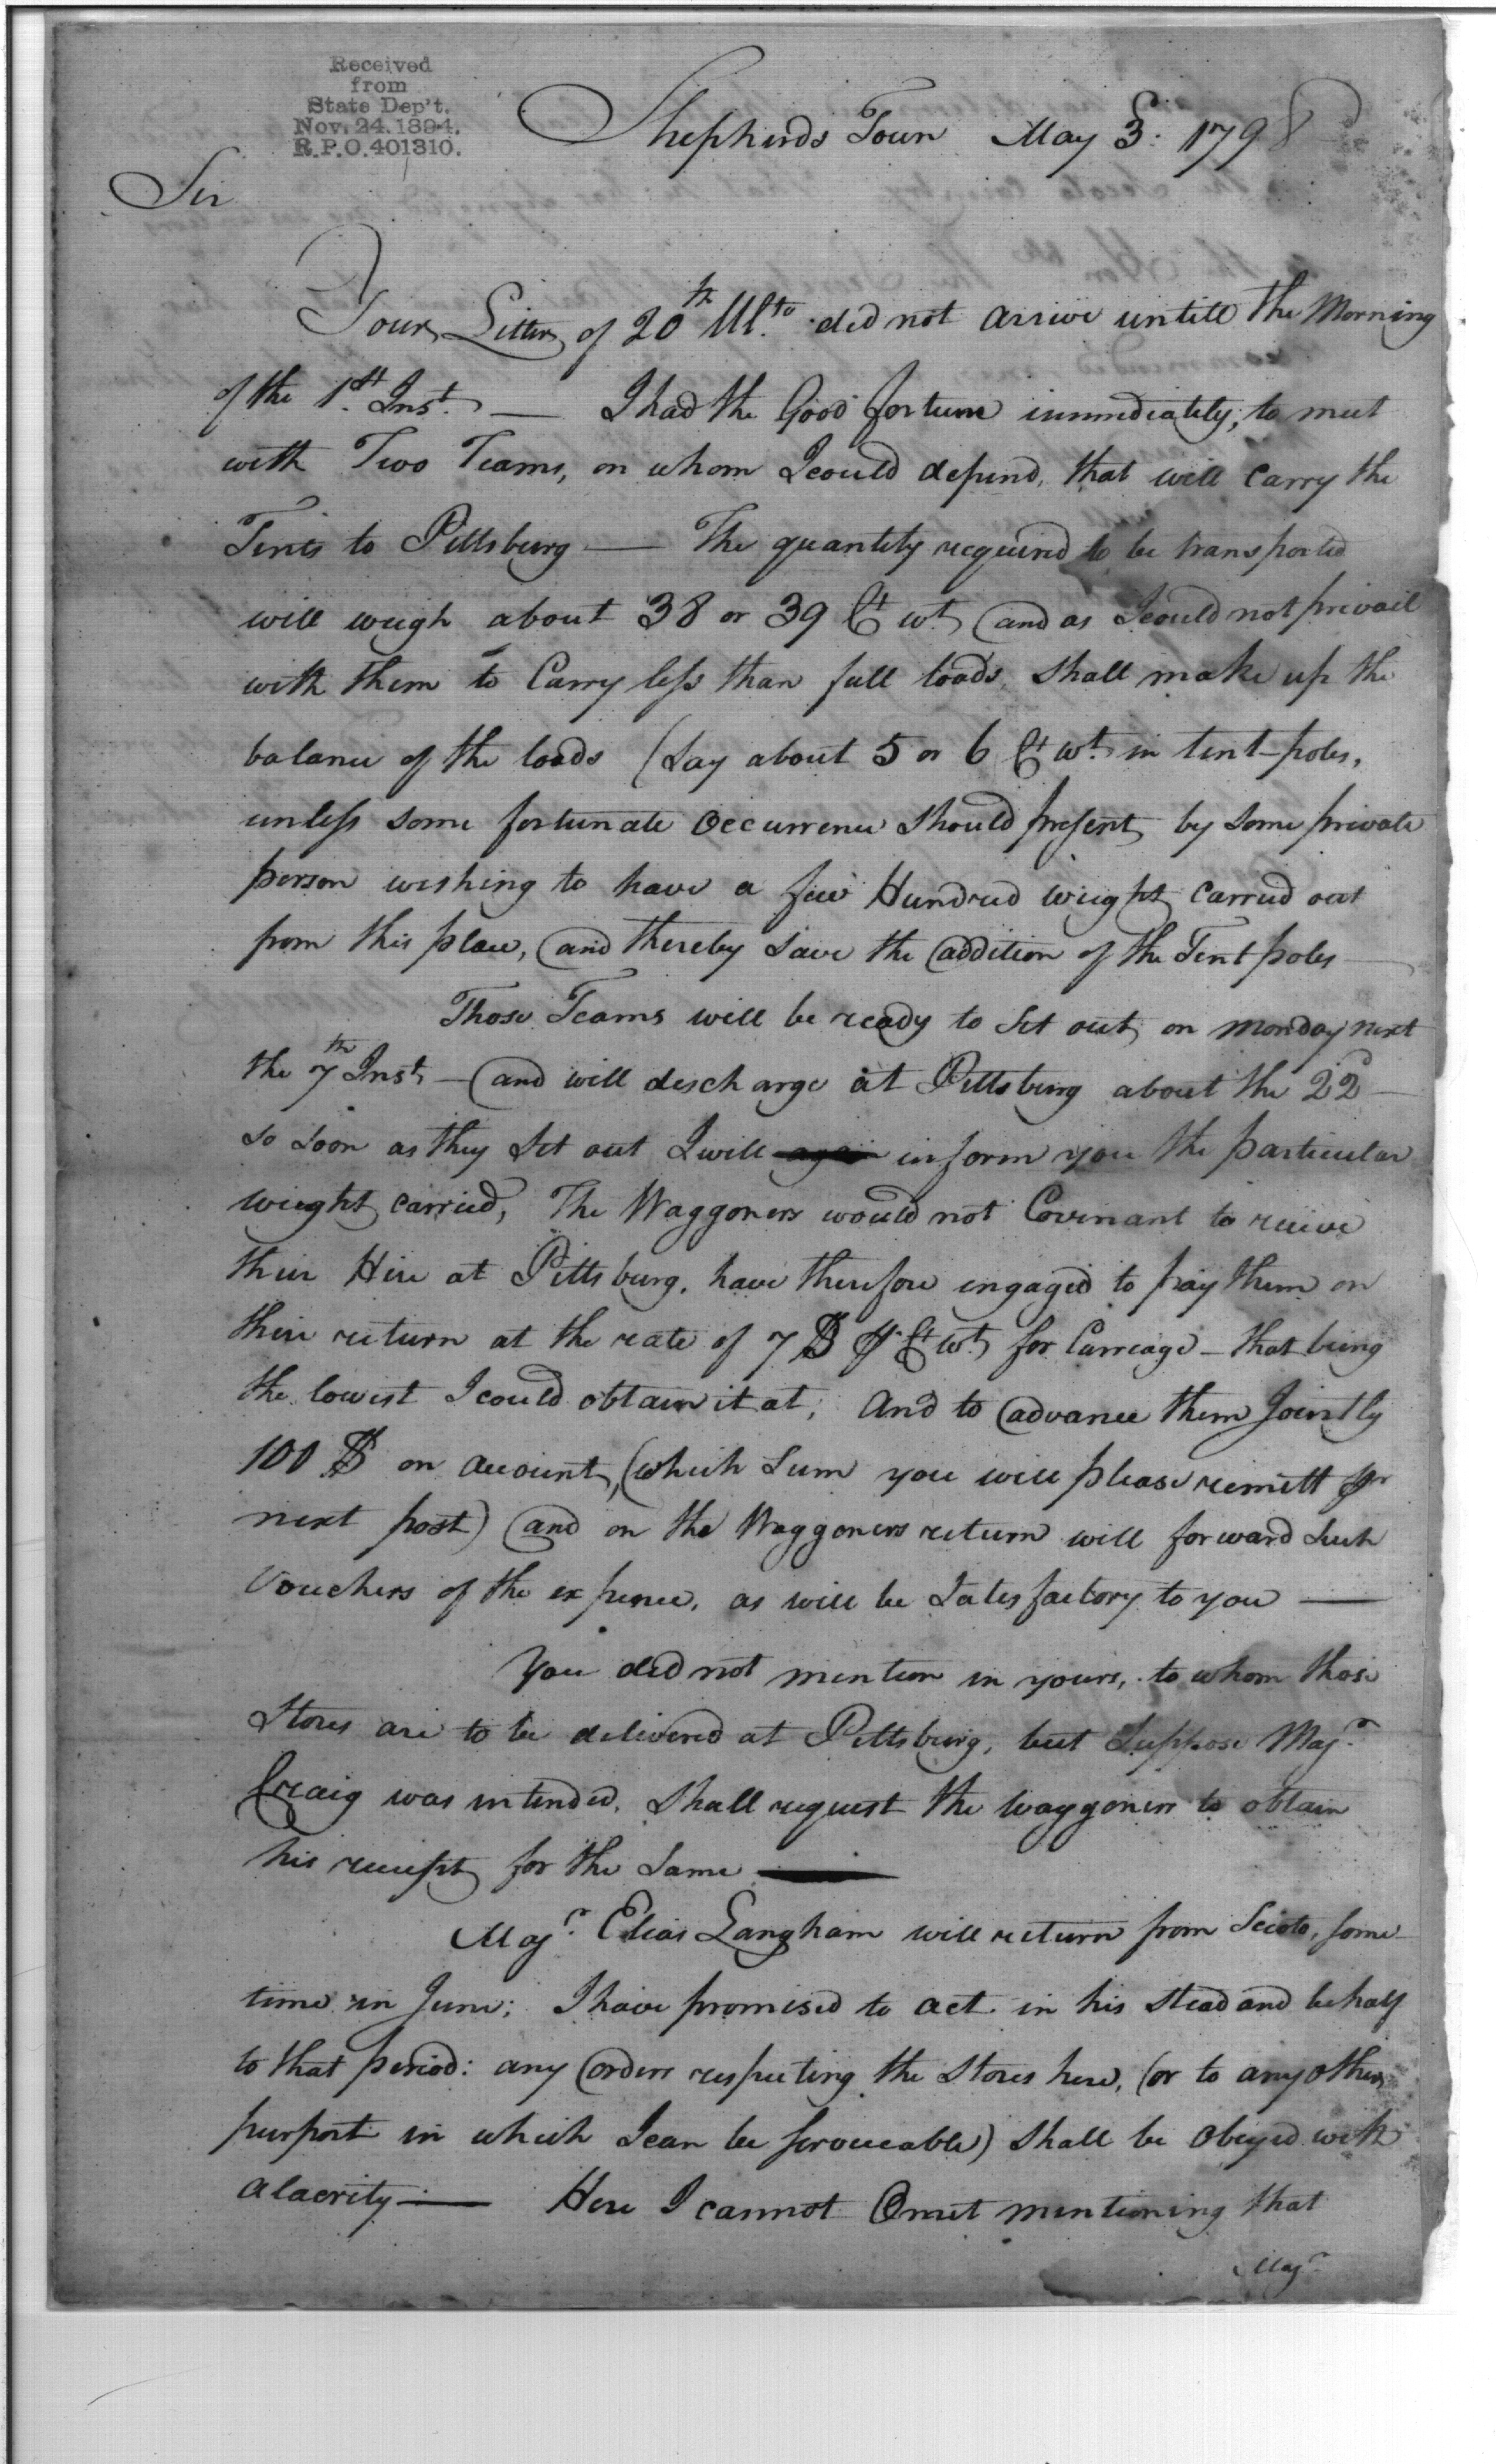 Received
from
State Dep't.
Nov. 24. 1894.
R.P.O. 401310.
Shepherds Town May 3: 1798
Sir
Your Letter of 20th Ulto. did not arrive untill the Morning
of the 1st. Inst. — I had the Good fortune immediately, to meet
with Two Teams, on whom I could depend, that will carry the
Tents to Pittsburg — The quantity required to be transported
will weigh about 38 or 39 Ct wt. and as I could not prevail
with them to Carry less than full loads, shall make up the
balance of the loads (say about 5 or 6 Ct wt. in tent-poles,
unless some fortunate occurrence should present, by some private
person wishing to have a few Hundred weight carried out
from this place, and thereby save the addition of the Tent poles —
Those Teams will be ready to set out, on monday next
the 7th Inst — and will discharge at Pittsburg about the 22d —
so soon as they set out I will again inform you the particular
weight carried, The Waggoners would not Covenant to receive
their Hire at Pittsburg, have therefore engaged to pay them on
their return at the rate of 7 $ pr Ct wt. for Carriage – that being
the lowest I could obtain it at, and to advance them Jointly
100 $ on account, (which sum you will please remitt pr
next post) and on the Waggoners return will forward such
Vouchers of the expence, as will be satisfactory to you —
You did not mention in yours, to whom those
stores are to be delivered at Pittsburg, but suppose Majr.
Craig was intended, shall request the waggoners to obtain
his receipt for the same —
Majr. Elias Langham will return from Scioto, some
time in June; I have promised to act in his stead and behalf
to that period: any orders respecting the stores here, (or to any other
purport in which I can be serviceable) shall be obeyed with
alacrity — Here I cannot omit mentioning that
Majr